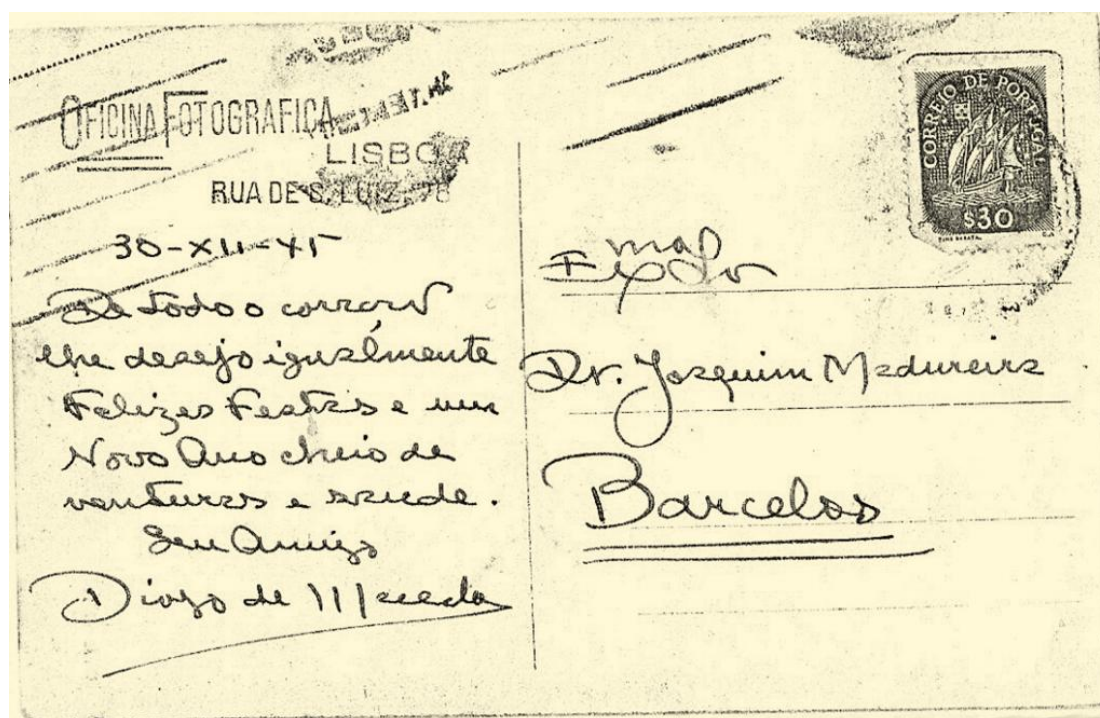 OFICINA FOTOGRAFICA
LISBOA
RUA DE S. LUIZ, 78
30-XII-45
De todo o coração
lhe desejo igualmente
Felizes Festas e um
Novo Ano cheio de
venturas e saude.
Seu Amigo
Diogo de Macedo
CORREIO DE PORTUGAL
$30
Exmo Sr
Dr. Joaquim Madureira
Barcelos